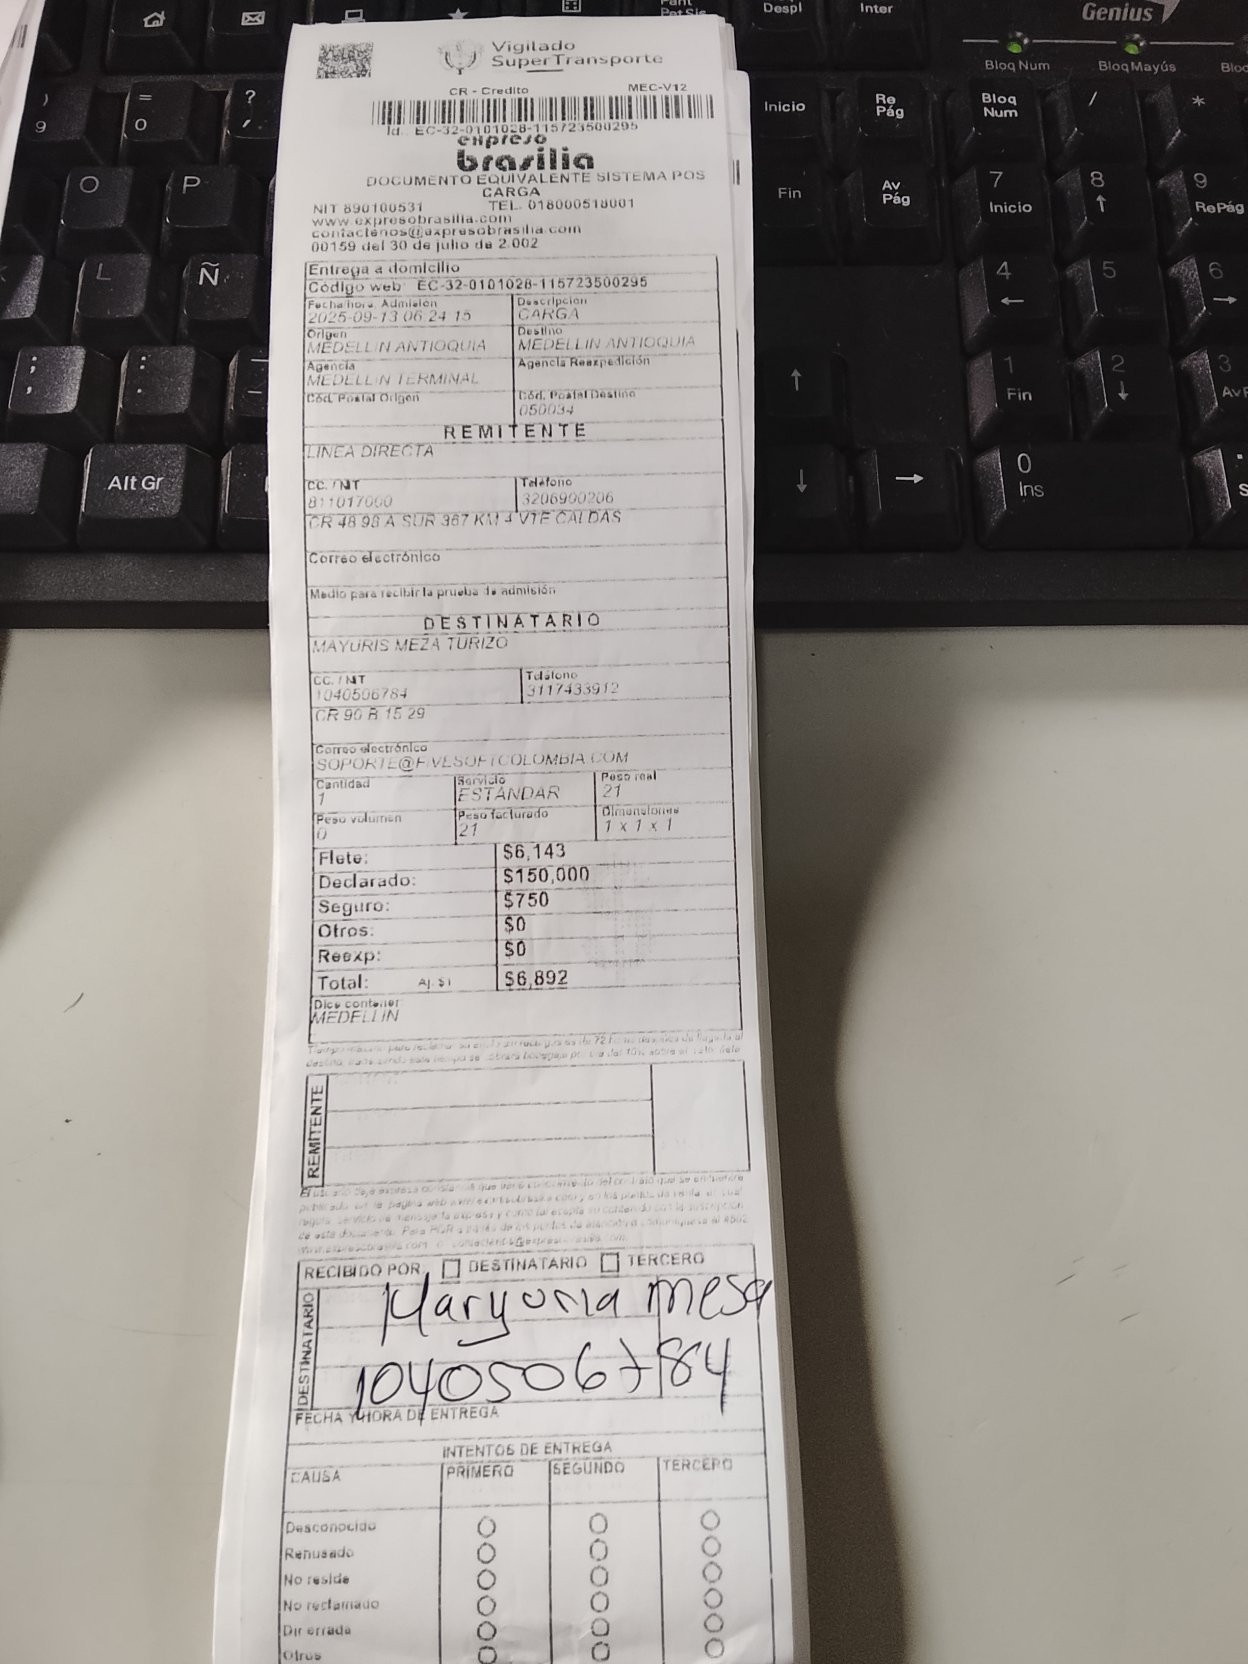 Vigilado
SuperTransporte
CR - Credito MEC-V12
Id.. EC-32-0101028-115723500295
expreso
brasilia
DOCUMENTO EQUIVALENTE SISTEMA POS
CARGA
NIT 890100531 TEL. 018000518001
www.expresobrasilia.com
contactenos@expresobrasilia.com
00159 del 30 de julio de 2.002
Entrega a domicilio
Código web: EC-32-0101028-115723500295
Fecha hora Admision Descripcion
2025-09-13 06:24:15 CARGA
Origen Destino
MEDELLIN ANTIOQUIA MEDELLIN ANTIOQUIA
Agencia Agencia Reexpedición
MEDELLIN TERMINAL
Cód. Postal Origen Cód. Postal Destino
050034
REMITENTE
LINEA DIRECTA
CC. / NIT Teléfono
811017000 3206900206
CR 48 98 A SUR 367 KM 4 VTE CALDAS
Correo electrónico
Medio para recibir la prueba de admisión
DESTINATARIO
MAYURIS MEZA TURIZO
CC. / NIT Teléfono
1040506784 3117433912
CR 90 B 15 29
Correo electrónico
SOPORTE@FIVESOFTCOLOMBIA.COM
Cantidad Servicio Peso real
1 ESTANDAR 21
Peso volumen Peso facturado Dimensiones
0 21 1 x 1 x 1
Flete: $6,143
Declarado: $150,000
Seguro: $750
Otros: $0
Reexp: $0
Total: Aj. $1 $6,892
Dice contener
MEDELLIN
REMITENTE
RECIBIDO POR DESTINATARIO TERCERO
DESTINATARIO
Maryuria mesa
1040506784
FECHA Y HORA DE ENTREGA
INTENTOS DE ENTREGA
CAUSA PRIMERO SEGUNDO TERCERO
Desconocido
Rehusado
No reside
No reclamado
Dir errada
Otros
Despl Inter
Genius
Bloq Num Bloq Mayús
Inicio Re Pág Bloq Num / *
Fin Av Pág 7 Inicio 8 9 RePág
4 5 6
1 Fin 2 3
0 Ins
) 9 = 0 ?
O P
L Ñ
Alt Gr